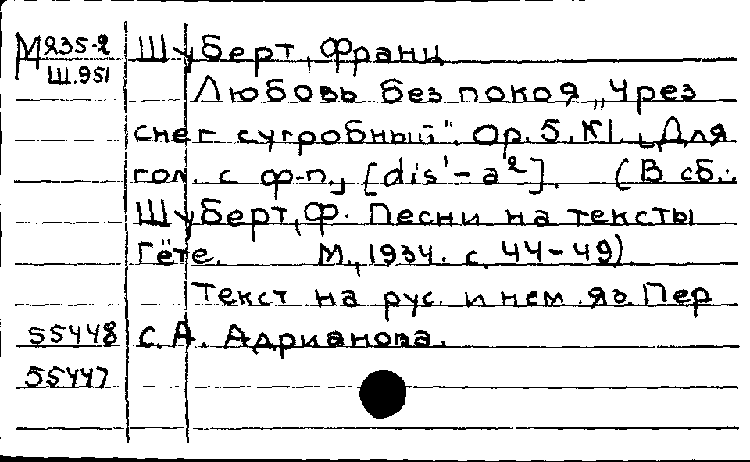 М235-2 Шуберт, Франц
Ш.951
Любовь без покоя „Чрез
снег сугробный". Op. 5, №1. [Для
гол. с ф-п., [dis¹-a²]. (В сб.:
Шуберт, Ф. Песни на тексты
Гёте. М., 1934. с. 44-49)
Текст на рус. и нем. яз. Пер
55448 С. А. Адрианова.
55447